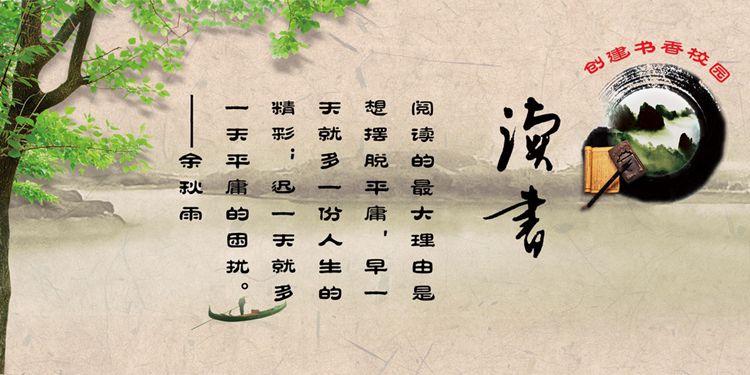 创建书香校园
读书
阅读的最大理由是
想摆脱平庸，早一
天就多一份人生的
精彩；迟一天就多
一天平庸的困扰。
——余秋雨